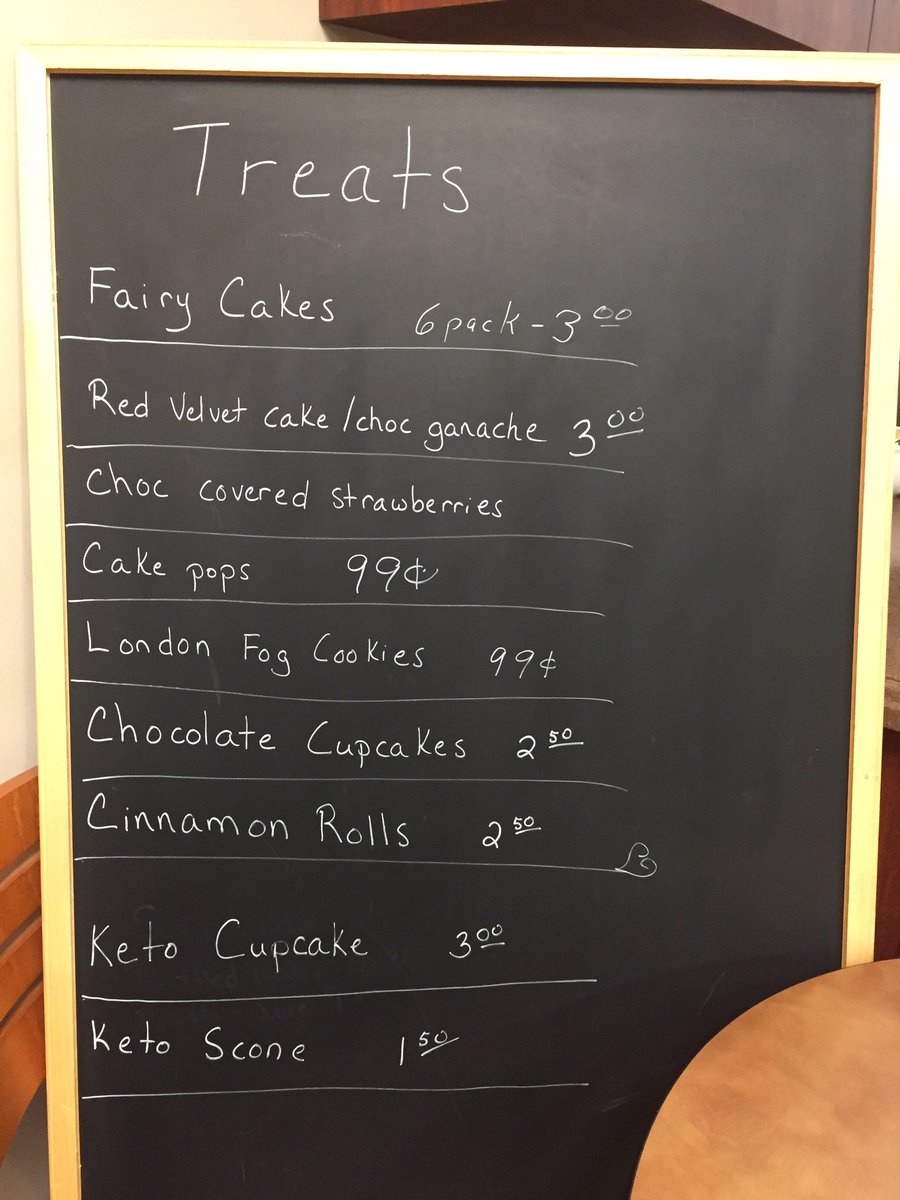 Treats
Fairy Cakes 6 pack - 3 00
Red Velvet cake / choc ganache 3 00
Choc covered strawberries
Cake pops 99¢
London Fog Cookies 99¢
Chocolate Cupcakes 2 50
Cinnamon Rolls 2 50
Keto Cupcake 3 00
Keto Scone 1 50